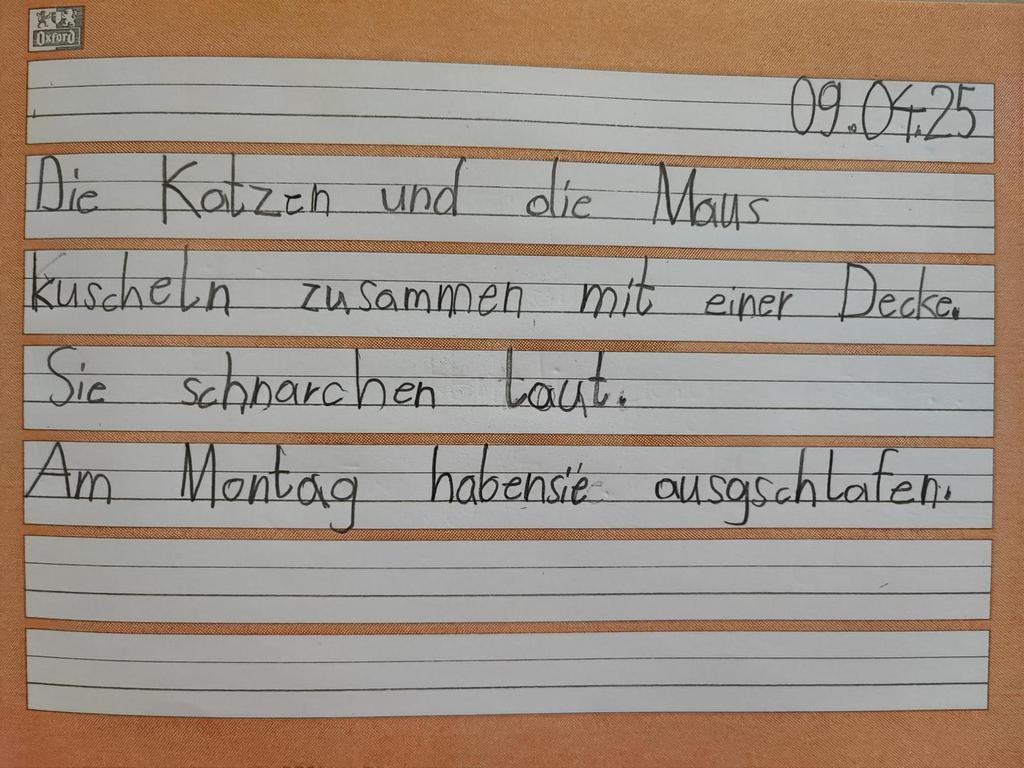 Oxford
09.04.25
Die Katzen und die Maus
kuscheln zusammen mit einer Decke.
Sie schnarchen laut.
Am Montag habensie ausgschlafen.